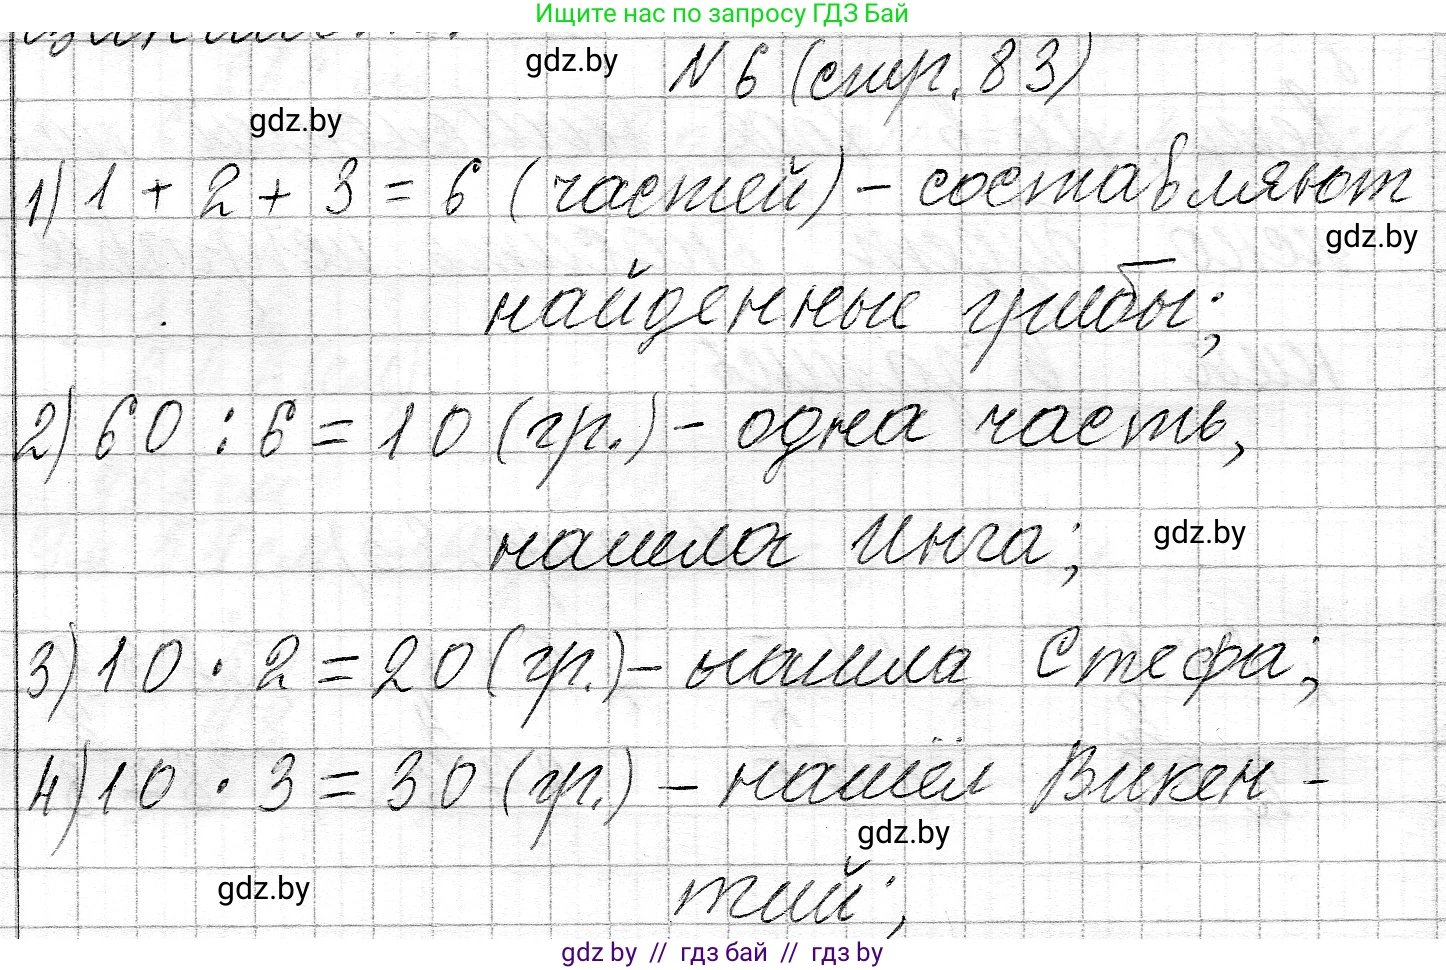 Ищите нас по запросу ГДЗ Бай
gdz.by
№ 6 (стр. 83)
gdz.by
1) 1 + 2 + 3 = 6 (частей) – составляют
gdz.by
найденные грибы;
2) 60 : 6 = 10 (гр.) – одна часть,
нашла Инга;
gdz.by
3) 10 · 2 = 20 (гр.) – нашла Стефа;
4) 10 · 3 = 30 (гр.) – нашёл Викен -
gdz.by
тий;
gdz.by
gdz by // гдз бай // гдз by